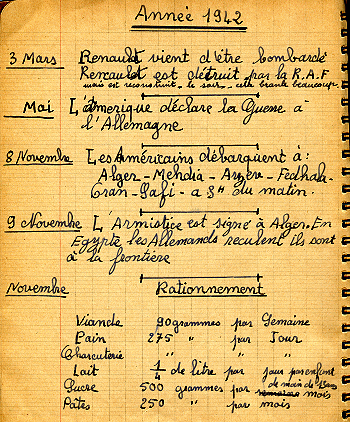 Année 1942
3 Mars Renault vient d'être bombardé
Renault est détruit par la R.A.F
mais est reconstruit le soir beaucoup
Mai L'Amerique déclare la Guerre à
l'Allemagne
8 Novembre Les Américains débarquent à :
Alger - Mehdia - - Fedhala
Oran - Safi - a 3H du matin.
9 Novembre L'Armistice est signé à Alger. En
Egypte les Allemands reculent ils sont
à la frontière
Novembre Rationnement
Viande 90 grammes par Semaine
Pain 275 " par Jour
Charcuterie " " " "
Lait 1/4 de litre par jour par enfant
de moin de
Sucre 500 grammes par mois
Pâtes 250 " par mois